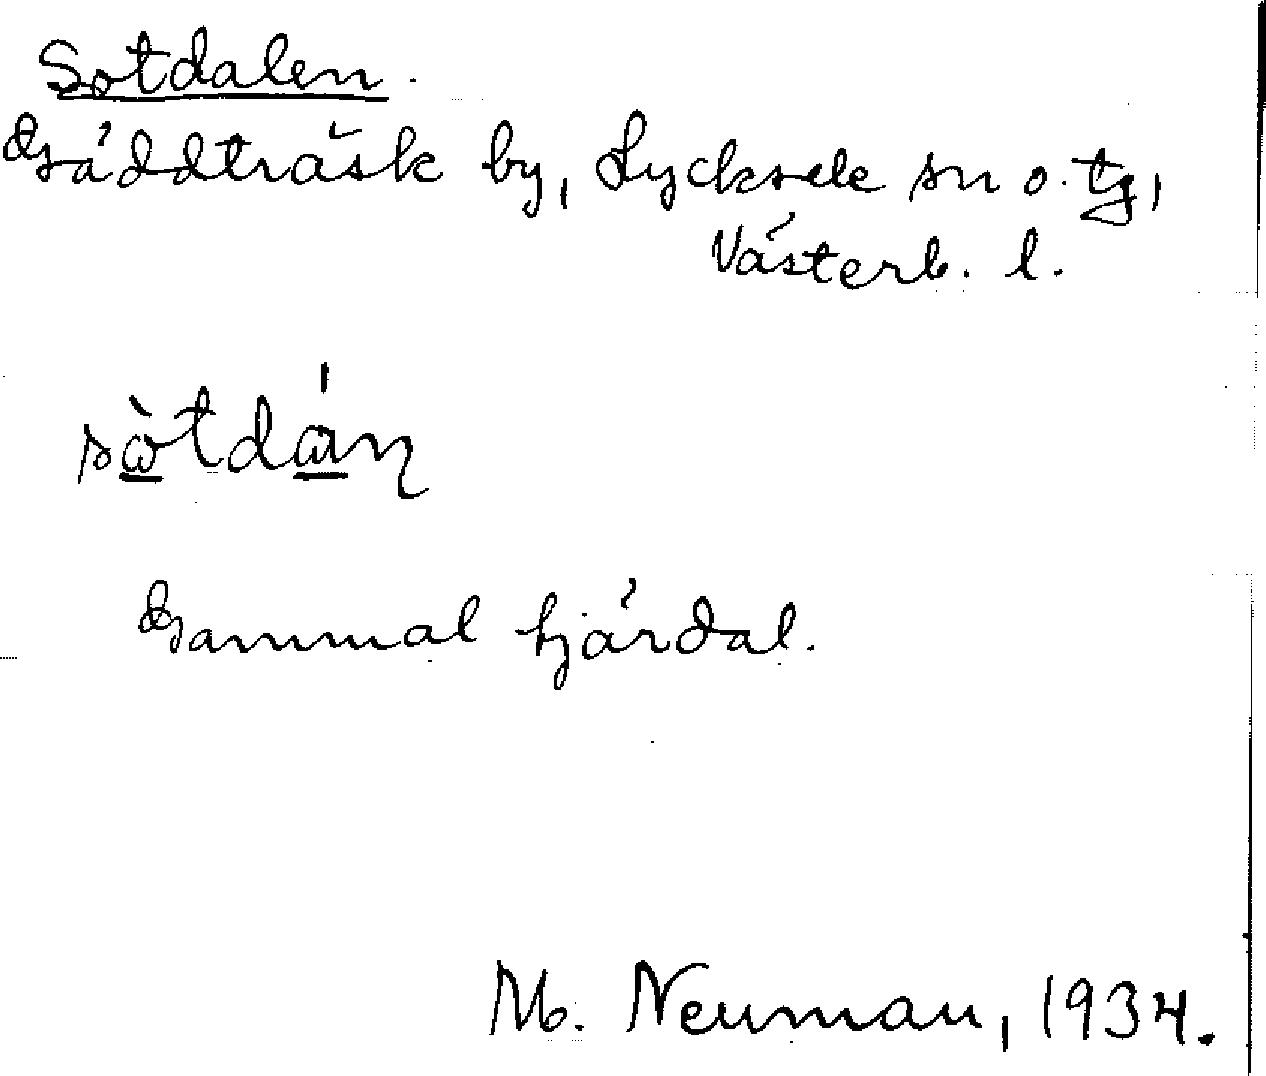 Sotdalen.
Gäddträsk by, Lycksele sn o. tg,
Västerb. l.
sòtdán
Gammal tjärdal.
M. Neuman, 1934.